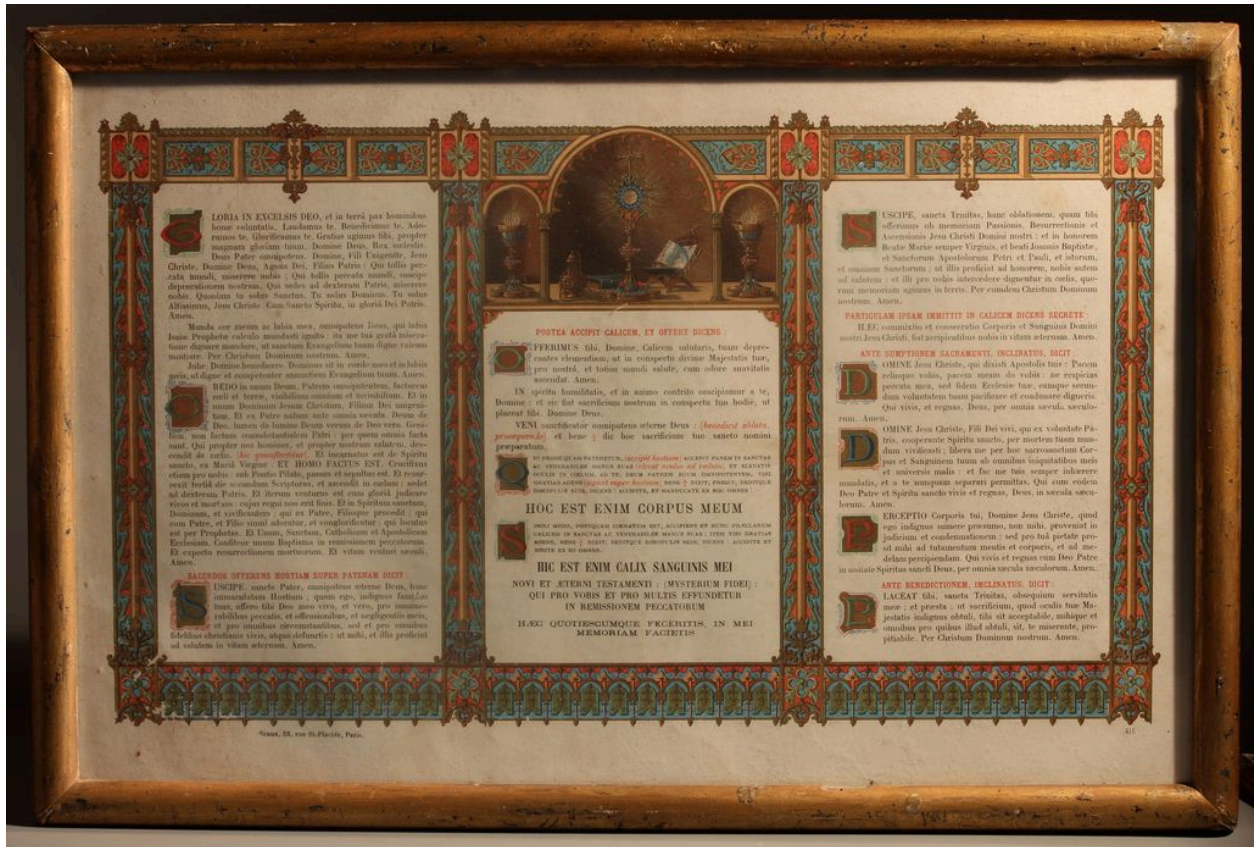 GLORIA IN EXCELSIS DEO, et in terrâ pax hominibus
bonæ voluntatis. Laudamus te. Benedicimus te. Ado-
ramus te. Glorificamus te. Gratias agimus tibi, propter
magnam gloriam tuam. Domine Deus, Rex cœlestis.
Deus Pater omnipotens. Domine, Fili Unigenite. Jesu
Christe, Domine Deus, Agnus Dei, Filius Patris : Qui tollis pec-
cata mundi, miserere nobis ; Qui tollis peccata mundi, suscipe
deprecationem nostram. Qui sedes ad dexteram Patris, miserere
nobis. Quoniam tu solus Sanctus. Tu solus Dominus. Tu solus
Altissimus, Jesu Christe. Cum Sancto Spiritu, in gloriâ Dei Patris.
Amen.
Munda cor meum ac labia mea, omnipotens Deus, qui labia
Isaiæ Prophetæ calculo mundasti ignito : ita me tuâ gratâ misera-
tione dignare mundare, ut sanctum Evangelium tuum digne valeam
nuntiare. Per Christum Dominum nostrum. Amen.
Jube, Domine benedicere. Dominus sit in corde meo et in labiis
meis, ut digne et competenter annuntiem Evangelium tuum. Amen.
CREDO in unum Deum, Patrem omnipotentem, factorem
cœli et terræ, visibilium omnium et invisibilium. Et in
unum Dominum Jesum Christum, Filium Dei unigeni-
tum. Et ex Patre natum ante omnia sæcula. Deum de
Deo, lumen de lumine Deum verum de Deo vero. Geni-
tum, non factum consubstantialem Patri : per quem omnia facta
sunt. Qui propter nos homines, et propter nostram salutem, des-
cendit de cœlis. (hic genuflectitur). Et incarnatus est de Spiritu
sancto, ex Mariâ Virgine : ET HOMO FACTUS EST. Crucifixus
etiam pro nobis : sub Pontio Pilato, passus et sepultus est. Et resur-
rexit tertiâ die secundum Scripturas, et ascendit in cœlum : sedet
ad dexteram Patris. Et iterum venturus est cum gloriâ judicare
vivos et mortuos : cujus regni non erit finis. Et in Spiritum sanctum,
Dominum, et vivificantem : qui ex Patre, Filioque procedit ; qui
cum Patre, et Filio simul adoratur, et conglorificatur ; qui locutus
est per Prophetas. Et Unam, Sanctam, Catholicam et Apostolicam
Ecclesiam. Confiteor unum Baptisma in remissionem peccatorum.
Et expecto resurrectionem mortuorum. Et vitam venturi sæculi.
Amen.
SACERDOS OFFERENS HOSTIAM SUPER PATENAM DICIT :
SUSCIPE, sancte Pater, omnipotens æterne Deus, hanc
immaculatam Hostiam ; quam ego, indignus famulus
tuus, offero tibi Deo meo vivo, et vero, pro innume-
rabilibus peccatis, et offensionibus, et negligentiis meis,
et pro omnibus circumstantibus, sed et pro omnibus
fidelibus christianis vivis, atque defunctis : ut mihi, et illis proficiat
ad salutem in vitam æternam. Amen.
POSTEA ACCIPIT CALICEM, ET OFFERT DICENS :
OFFERIMUS tibi, Domine, Calicem salutaris, tuam depre-
cantes clementiam, ut in conspectu divinæ Majestatis tuæ,
pro nostrâ, et totius mundi salute, cum odore suavitatis
ascendat. Amen.
IN spiritu humilitatis, et in animo contrito suscipiamur a te,
Domine : et sic fiat sacrificium nostrum in conspectu tuo hodie, ut
placeat tibi. Domine Deus.
VENI sanctificator omnipotens æterne Deus : (benedicit oblata,
prosequendo) et bene ☩ dic hoc sacrificium tuo sancto nomini
præparatum.
QUI PRIDIE QUAM PATERETUR, (accipit hostiam) ACCEPIT PANEM IN SANCTAS
AC VENERABILES MANUS SUAS (elevat oculos ad cœlum), ET ELEVATIS
OCULIS IN CŒLUM, AD TE, DEUM PATREM SUUM OMNIPOTENTEM, TIBI
GRATIAS AGENS (signat super hostiam) BENE ☩ DIXIT, FREGIT, DEDITQUE
DISCIPULIS SUIS, DICENS : ACCIPITE, ET MANDUCATE EX HOC OMNES :
HOC EST ENIM CORPUS MEUM
SIMILI MODO, POSTQUAM CŒNATUM EST, ACCIPIENS ET HUNC PRÆCLARUM
CALICEM IN SANCTAS AC VENERABILES MANUS SUAS : ITEM TIBI GRATIAS
AGENS, BENE ☩ DIXIT, DEDITQUE DISCIPULIS SUIS, DICENS : ACCIPITE ET
BIBITE EX EO OMNES.
HIC EST ENIM CALIX SANGUINIS MEI
NOVI ET ÆTERNI TESTAMENTI : (MYSTERIUM FIDEI) :
QUI PRO VOBIS ET PRO MULTIS EFFUNDETUR
IN REMISSIONEM PECCATORUM
HÆC QUOTIESCUMQUE FECERITIS, IN MEI
MEMORIAM FACIETIS
SUSCIPE, sancta Trinitas, hanc oblationem, quam tibi
offerimus ob memoriam Passionis, Resurrectionis et
Ascensionis Jesu Christi Domini nostri : et in honorem
Beatæ Mariæ semper Virginis, et beati Joannis Baptistæ,
et Sanctorum Apostolorum Petri et Pauli, et istorum,
et omnium Sanctorum ; ut illis proficiat ad honorem, nobis autem
ad salutem : et illi pro nobis intercedere dignentur in cœlis, quo-
rum memoriam agimus in terris. Per eumdem Christum Dominum
nostrum. Amen.
PARTICULAM IPSAM IMMITTIT IN CALICEM DICENS SECRETE :
HÆC commixtio et consecratio Corporis et Sanguinis Domini
nostri Jesu Christi, fiat accipientibus nobis in vitam æternam. Amen.
ANTE SUMPTIONEM SACRAMENTI, INCLINATUS, DICIT :
DOMINE Jesu Christe, qui dixisti Apostolis tuis : Pacem
relinquo vobis, pacem meam do vobis : ne respicias
peccata mea, sed fidem Ecclesiæ tuæ, eamque secun-
dum voluntatem tuam pacificare et coadunare digneris.
Qui vivis, et regnas, Deus, per omnia sæcula sæculo-
rum. Amen.
DOMINE Jesu Christe, Fili Dei vivi, qui ex voluntate Pa-
tris, cooperante Spiritu sancto, per mortem tuam mun-
dum vivificasti ; libera me per hoc sacrosanctum Cor-
pus et Sanguinem tuum ab omnibus iniquitatibus meis
et universis malis : et fac me tuis semper inhærere
mandatis, et a te nunquam separari permittas. Qui cum eodem
Deo Patre et Spiritu sancto vivis et regnas, Deus, in sæcula sæcu-
lorum. Amen.
PERCEPTIO Corporis tui, Domine Jesu Christe, quod
ego indignus sumere præsumo, non mihi, proveniat in
judicium et condemnationem : sed pro tuâ pietate pro-
sit mihi ad tutamentum mentis et corporis, et ad me-
delam percipiendam. Qui vivis et regnas cum Deo Patre
in unitate Spiritus sancti Deus, per omnia sæcula sæculorum. Amen.
ANTE BENEDICTIONEM, INCLINATUS, DICIT :
PLACEAT tibi, sancta Trinitas, obsequium servitutis
meæ ; et præsta : ut sacrificium, quod oculis tuæ Ma-
jestatis indignus obtuli, tibi sit acceptabile, mihique et
omnibus pro quibus illud obtuli, sit, te miserante, pro-
pitiabile. Per Christum Dominum nostrum. Amen.
rue St-Placide, Paris.